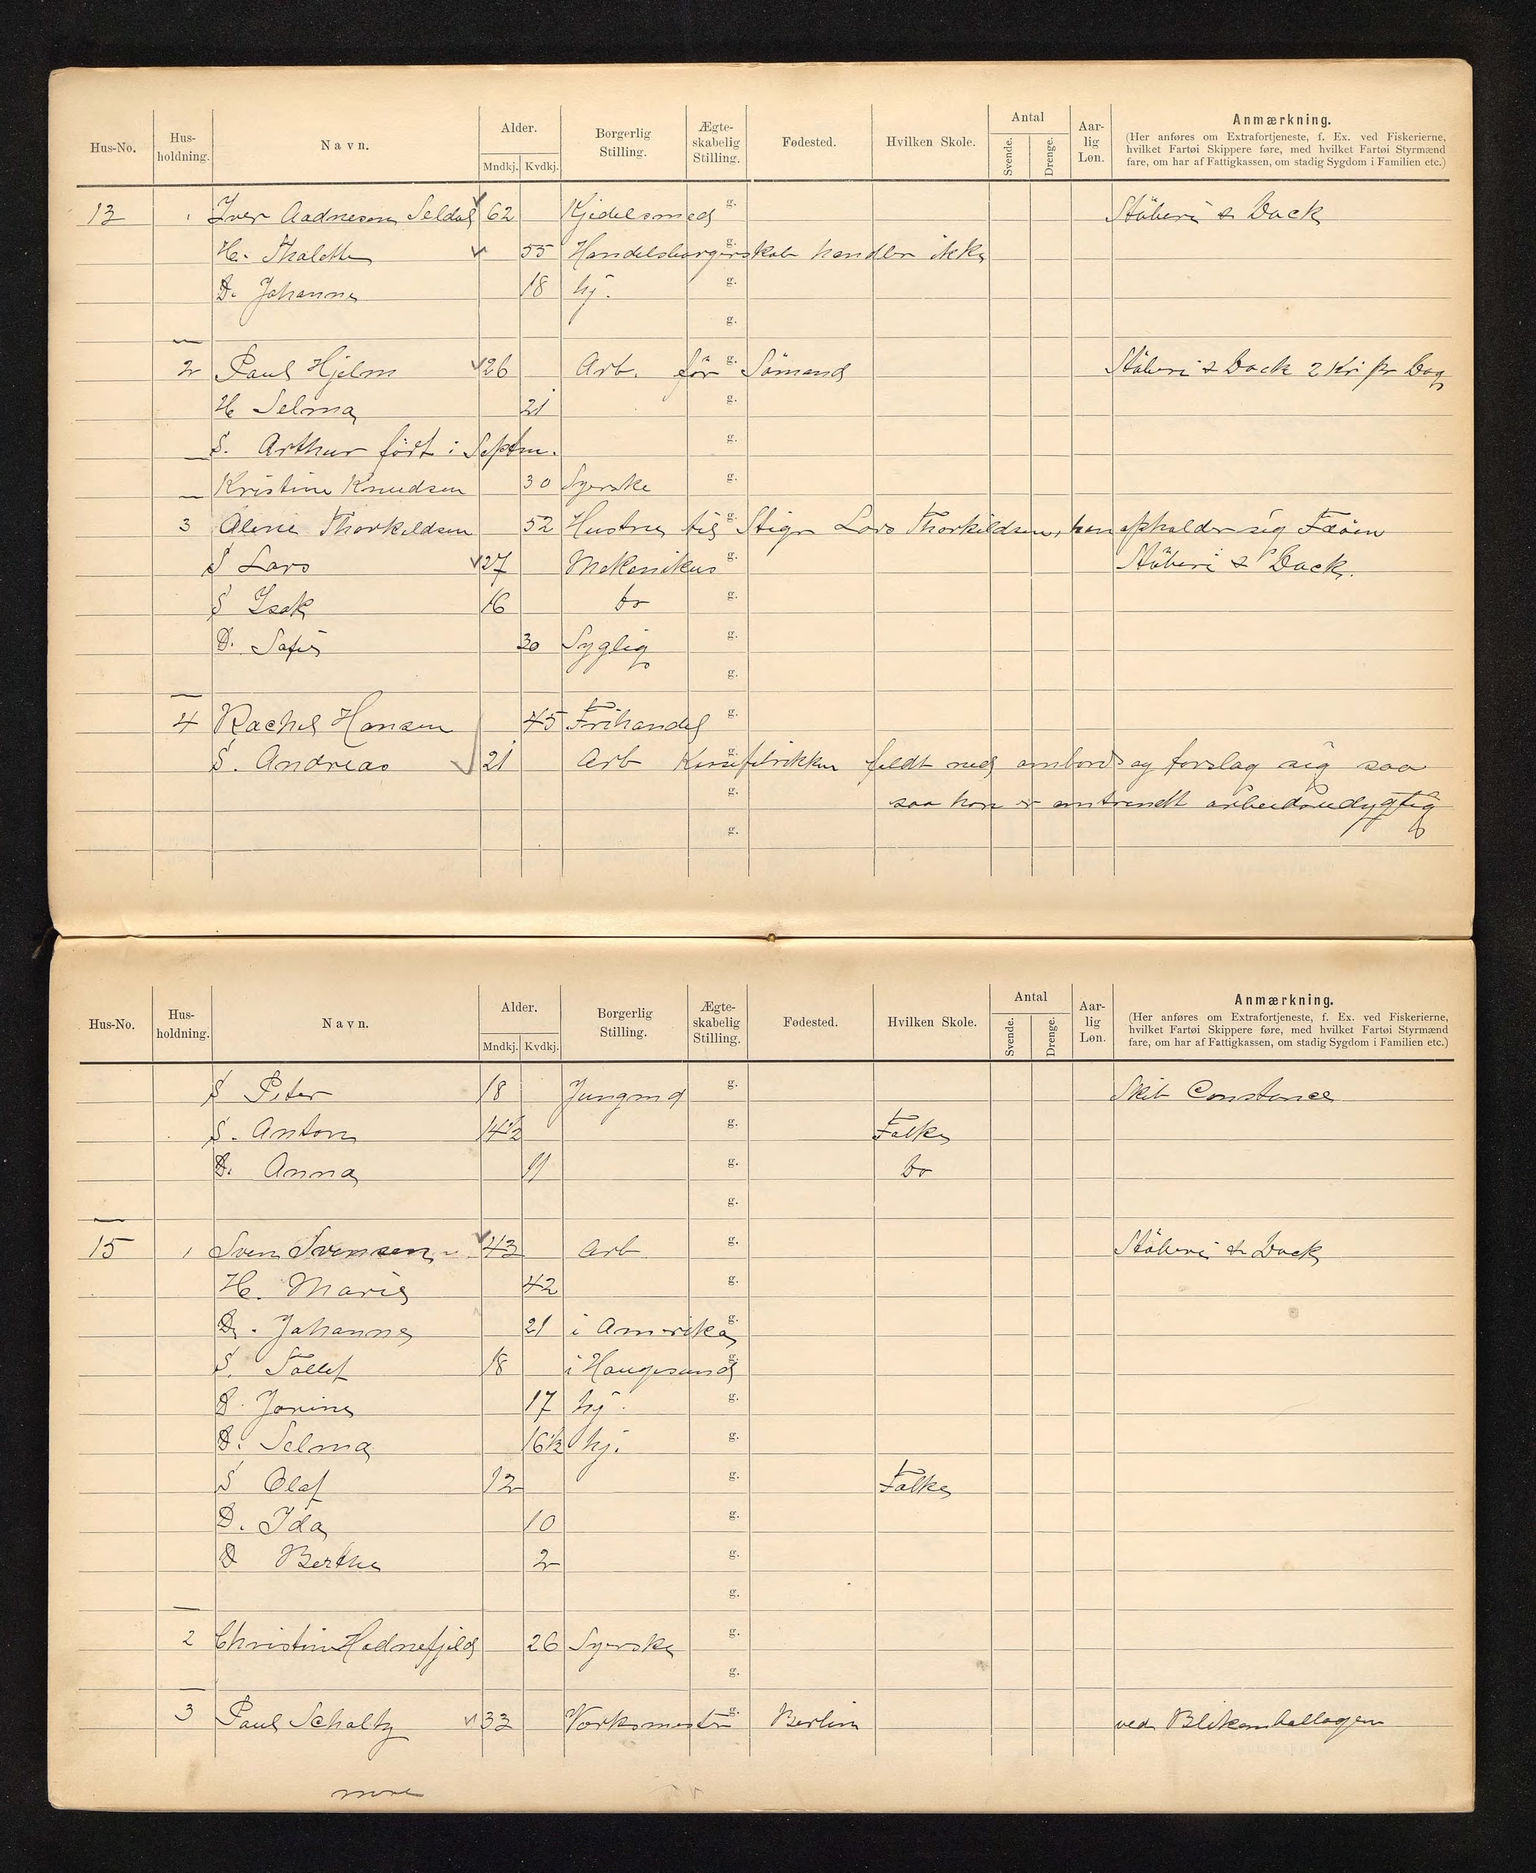 Hus-No. Hus-holdning. Navn. Alder. Mndkj. Kvdkj. Borgerlig Stilling. Ægte-skabelig Stilling. Fødested. Hvilken Skole. Antal Svende. Drenge. Aar-lig Løn. Anmærkning.
(Her anføres om Extrafortjeneste, f. Ex. ved Fiskerierne, hvilket Fartøi Skippere føre, med hvilket Fartøi Styrmænd fare, om har af Fattigkassen, om stadig Sygdom i Familien etc.)
13 1 Iver Aadnesen Seldal 62 Kjedelsmed g. Stöberi & Dock
H. Thalette 55 Handelsborgerskab handler ikke g.
D. Johanne 18 hj. g.
g.
2 Paul Hjelm 26 Arb. för Sömand g. Stöberi & Dock 2 Kr pr Dag
H Selma 21 g.
S. Arthur födt i Septbr. g.
Kristine Knudsen 30 Syerske g.
3 Alene Thorkildsen 52 Hustru til Stigr Lars Thorkildsen, han opholder sig Faöen g.
S Lars 27 Mekanikus g. Stöberi & Dock.
S Isak 16 do g.
D. Sofie 30 Syglig g.
g.
4 Rachel Hansen 45 Frihandel g.
S. Andreas 21 Arb faldt ned ombord og forslog sig saa g.
saa han er omtrendt arbeidsudygtig g.
g.
Hus-No. Hus-holdning. Navn. Alder. Mndkj. Kvdkj. Borgerlig Stilling. Ægte-skabelig Stilling. Fødested. Hvilken Skole. Antal Svende. Drenge. Aar-lig Løn. Anmærkning.
(Her anføres om Extrafortjeneste, f. Ex. ved Fiskerierne, hvilket Fartøi Skippere føre, med hvilket Fartøi Styrmænd fare, om har af Fattigkassen, om stadig Sygdom i Familien etc.)
S Peter 18 Jungmd g. Skib Constance
S. Anton 14½ g. Folke
D. Anna 11 g. do
g.
15 1 Sven Svensen 43 Arb g. Stöberi & Dock
H. Marie 42 g.
D. Johanne 21 i Amerika g.
S. Tollef 18 i Haugesund g.
D. Jorine 17 hj. g.
D. Selma 16½ hj. g.
S Olaf 12 g. Folke
D. Ida 10 g.
D Berthe 2 g.
g.
2 Christine Hodnefjeld 26 Syerske g.
g.
3 Paul Scholtz 33 Værksmester g. Berlin ved Blikemballagen